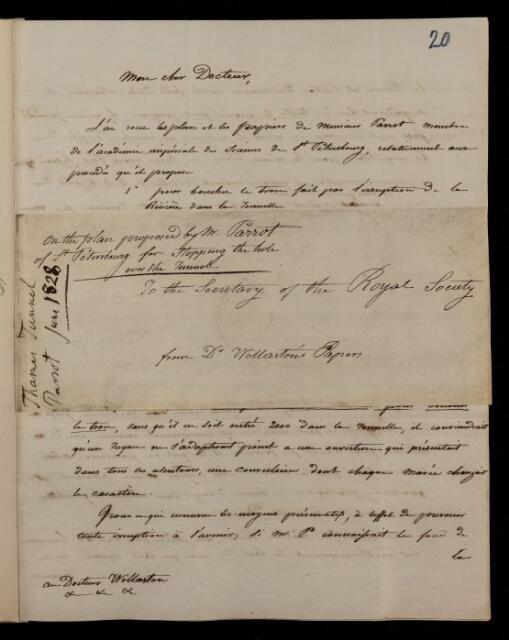 20
Mon cher Docteur,
J'ai reçu les plan et les papiers de Monsieur Parrot membre
de l'académie impériale des Sciences de St Pétersbourg, relativement aux
procédés qu'il propose
1° pour boucher le trou fait par l'irruption de la
Rivière dans la Tunnelle
On the plan proposed by Mr. Parrot
of St Petersbourg for Stopping the hole
over the Tunnel
To the Secretary of the Royal Society
from Dr Wollaston's Papers
Thames Tunnel
Parrot June 1828
pour boucher
le trou, sans qu'il en soit entré dans la Tunnelle, il conviendrait
qu'un tuyau ne s'adapterait point a une ouverture qui présentait
dans tous ses alentours, une convulsion dont chaque marée changeait
le caractère.
Quant à ce qui concerne les moyens préservatifs, à l'effet de prévenir
toute irruption à l'avenir, si Mr P. connaissait le fond de
la
au Docteur Wollaston
&c &c &c